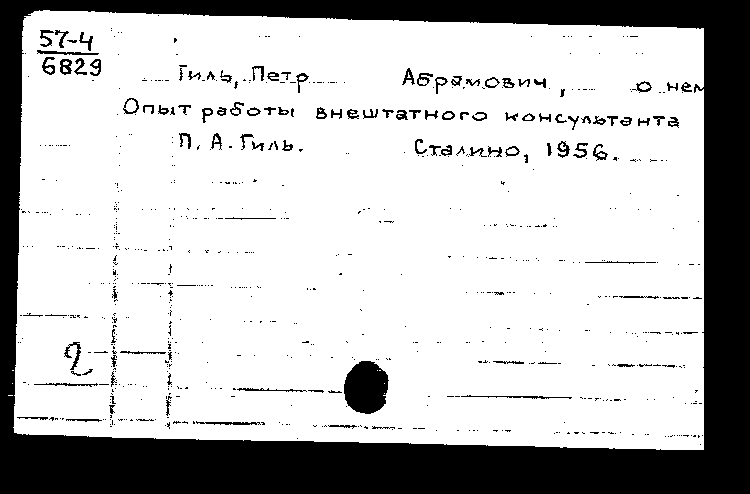 57-4
6829
Гиль, Петр Абрамович, о нем
Опыт работы внештатного консультанта
П. А. Гиль. Сталино, 1956.
2